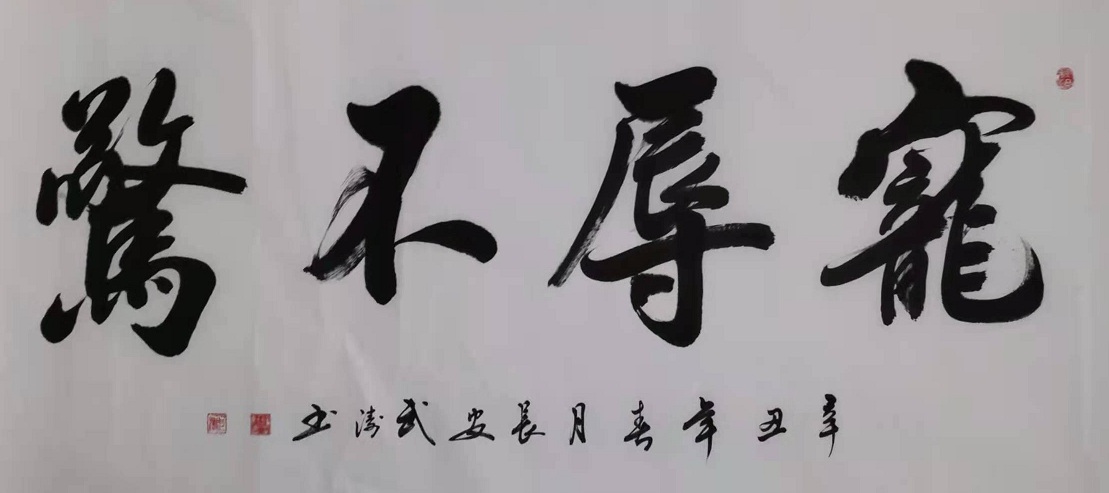 寵辱不驚
辛丑年春月長安武濤书